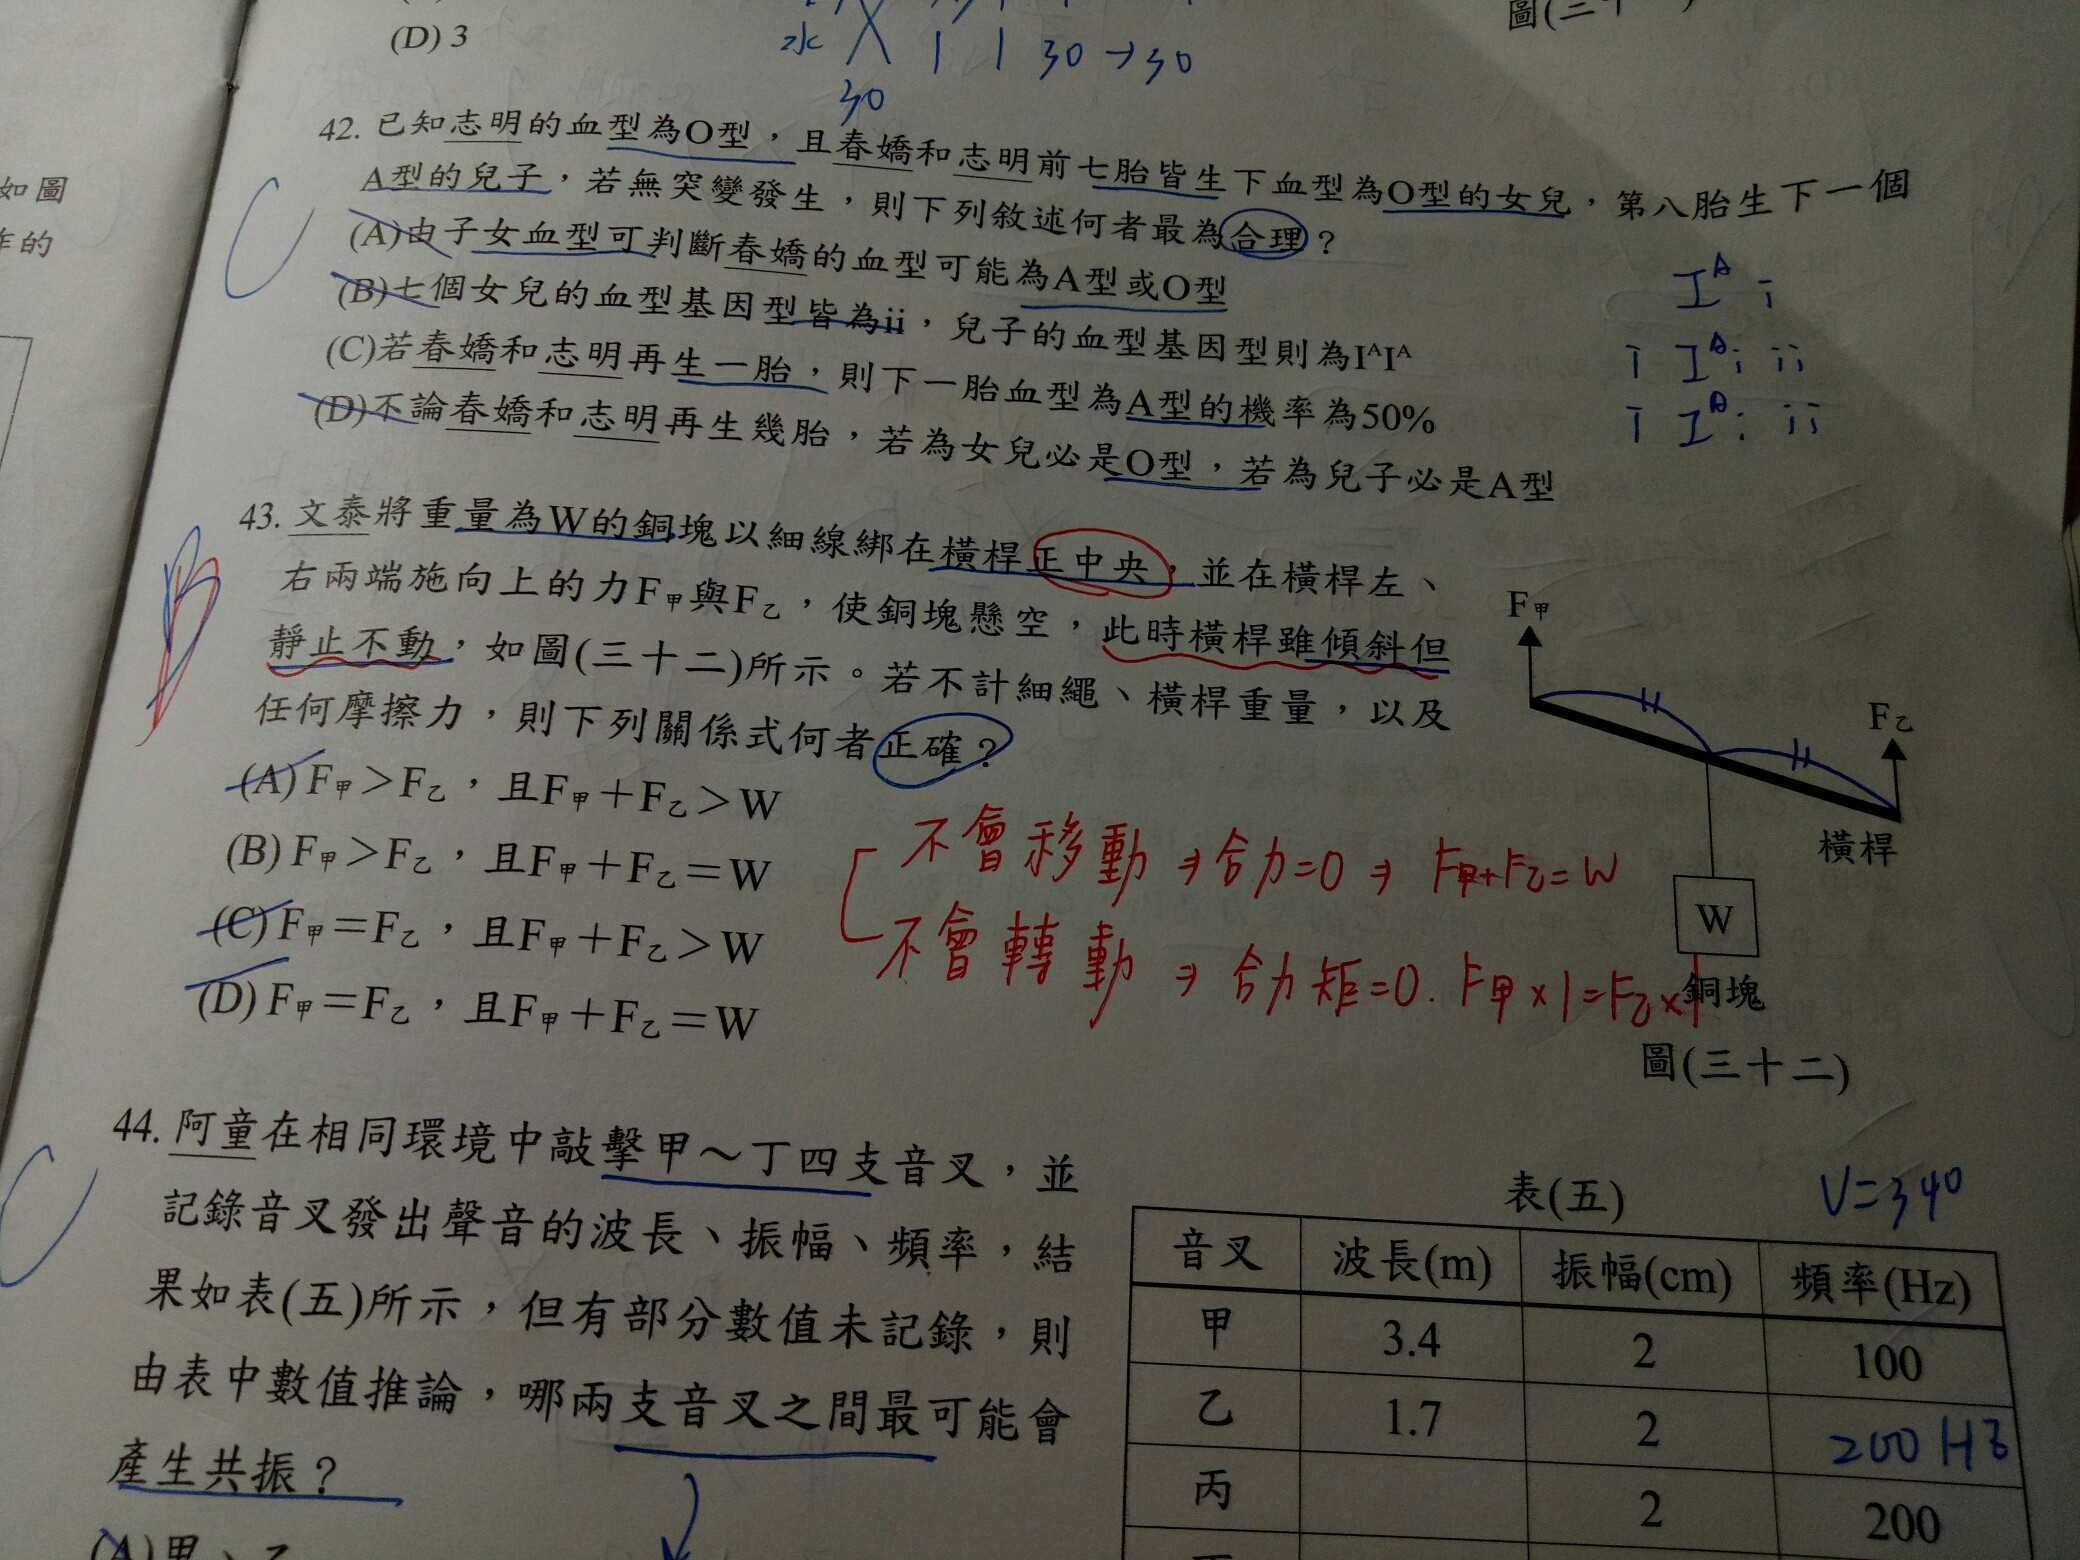 (D) 3
水 1 1 30 → 30
30
圖(三十
如圖
作的
42. 已知志明的血型為O型，且春嬌和志明前七胎皆生下血型為O型的女兒，第八胎生下一個
A型的兒子，若無突變發生，則下列敘述何者最為合理？
C
(A)由子女血型可判斷春嬌的血型可能為A型或O型
(B)七個女兒的血型基因型皆為ii，兒子的血型基因型則為IᴬIᴬ
(C)若春嬌和志明再生一胎，則下一胎血型為A型的機率為50%
(D)不論春嬌和志明再生幾胎，若為女兒必是O型，若為兒子必是A型
Iᴬ i
i Iᴬi ii
i Iᴬi ii
43. 文泰將重量為W的銅塊以細線綁在橫桿正中央，並在橫桿左、
右兩端施向上的力F甲與F乙，使銅塊懸空，此時橫桿雖傾斜但
靜止不動，如圖(三十二)所示。若不計細繩、橫桿重量，以及
任何摩擦力，則下列關係式何者正確？
B
(A) F甲＞F乙，且F甲＋F乙＞W
(B) F甲＞F乙，且F甲＋F乙＝W
(C) F甲＝F乙，且F甲＋F乙＞W
(D) F甲＝F乙，且F甲＋F乙＝W
不會移動 ⇒ 合力=0 ⇒ F甲+F乙=W
不會轉動 ⇒ 合力矩=0. F甲×1=F乙×1
F甲
F乙
橫桿
W
銅塊
圖(三十二)
44. 阿童在相同環境中敲擊甲～丁四支音叉，並
記錄音叉發出聲音的波長、振幅、頻率，結
果如表(五)所示，但有部分數值未記錄，則
由表中數值推論，哪兩支音叉之間最可能會
產生共振？
C
(A)甲、乙
表(五)
V=340
音叉 波長(m) 振幅(cm) 頻率(Hz)
甲 3.4 2 100
乙 1.7 2 200 Hz
丙 2 200